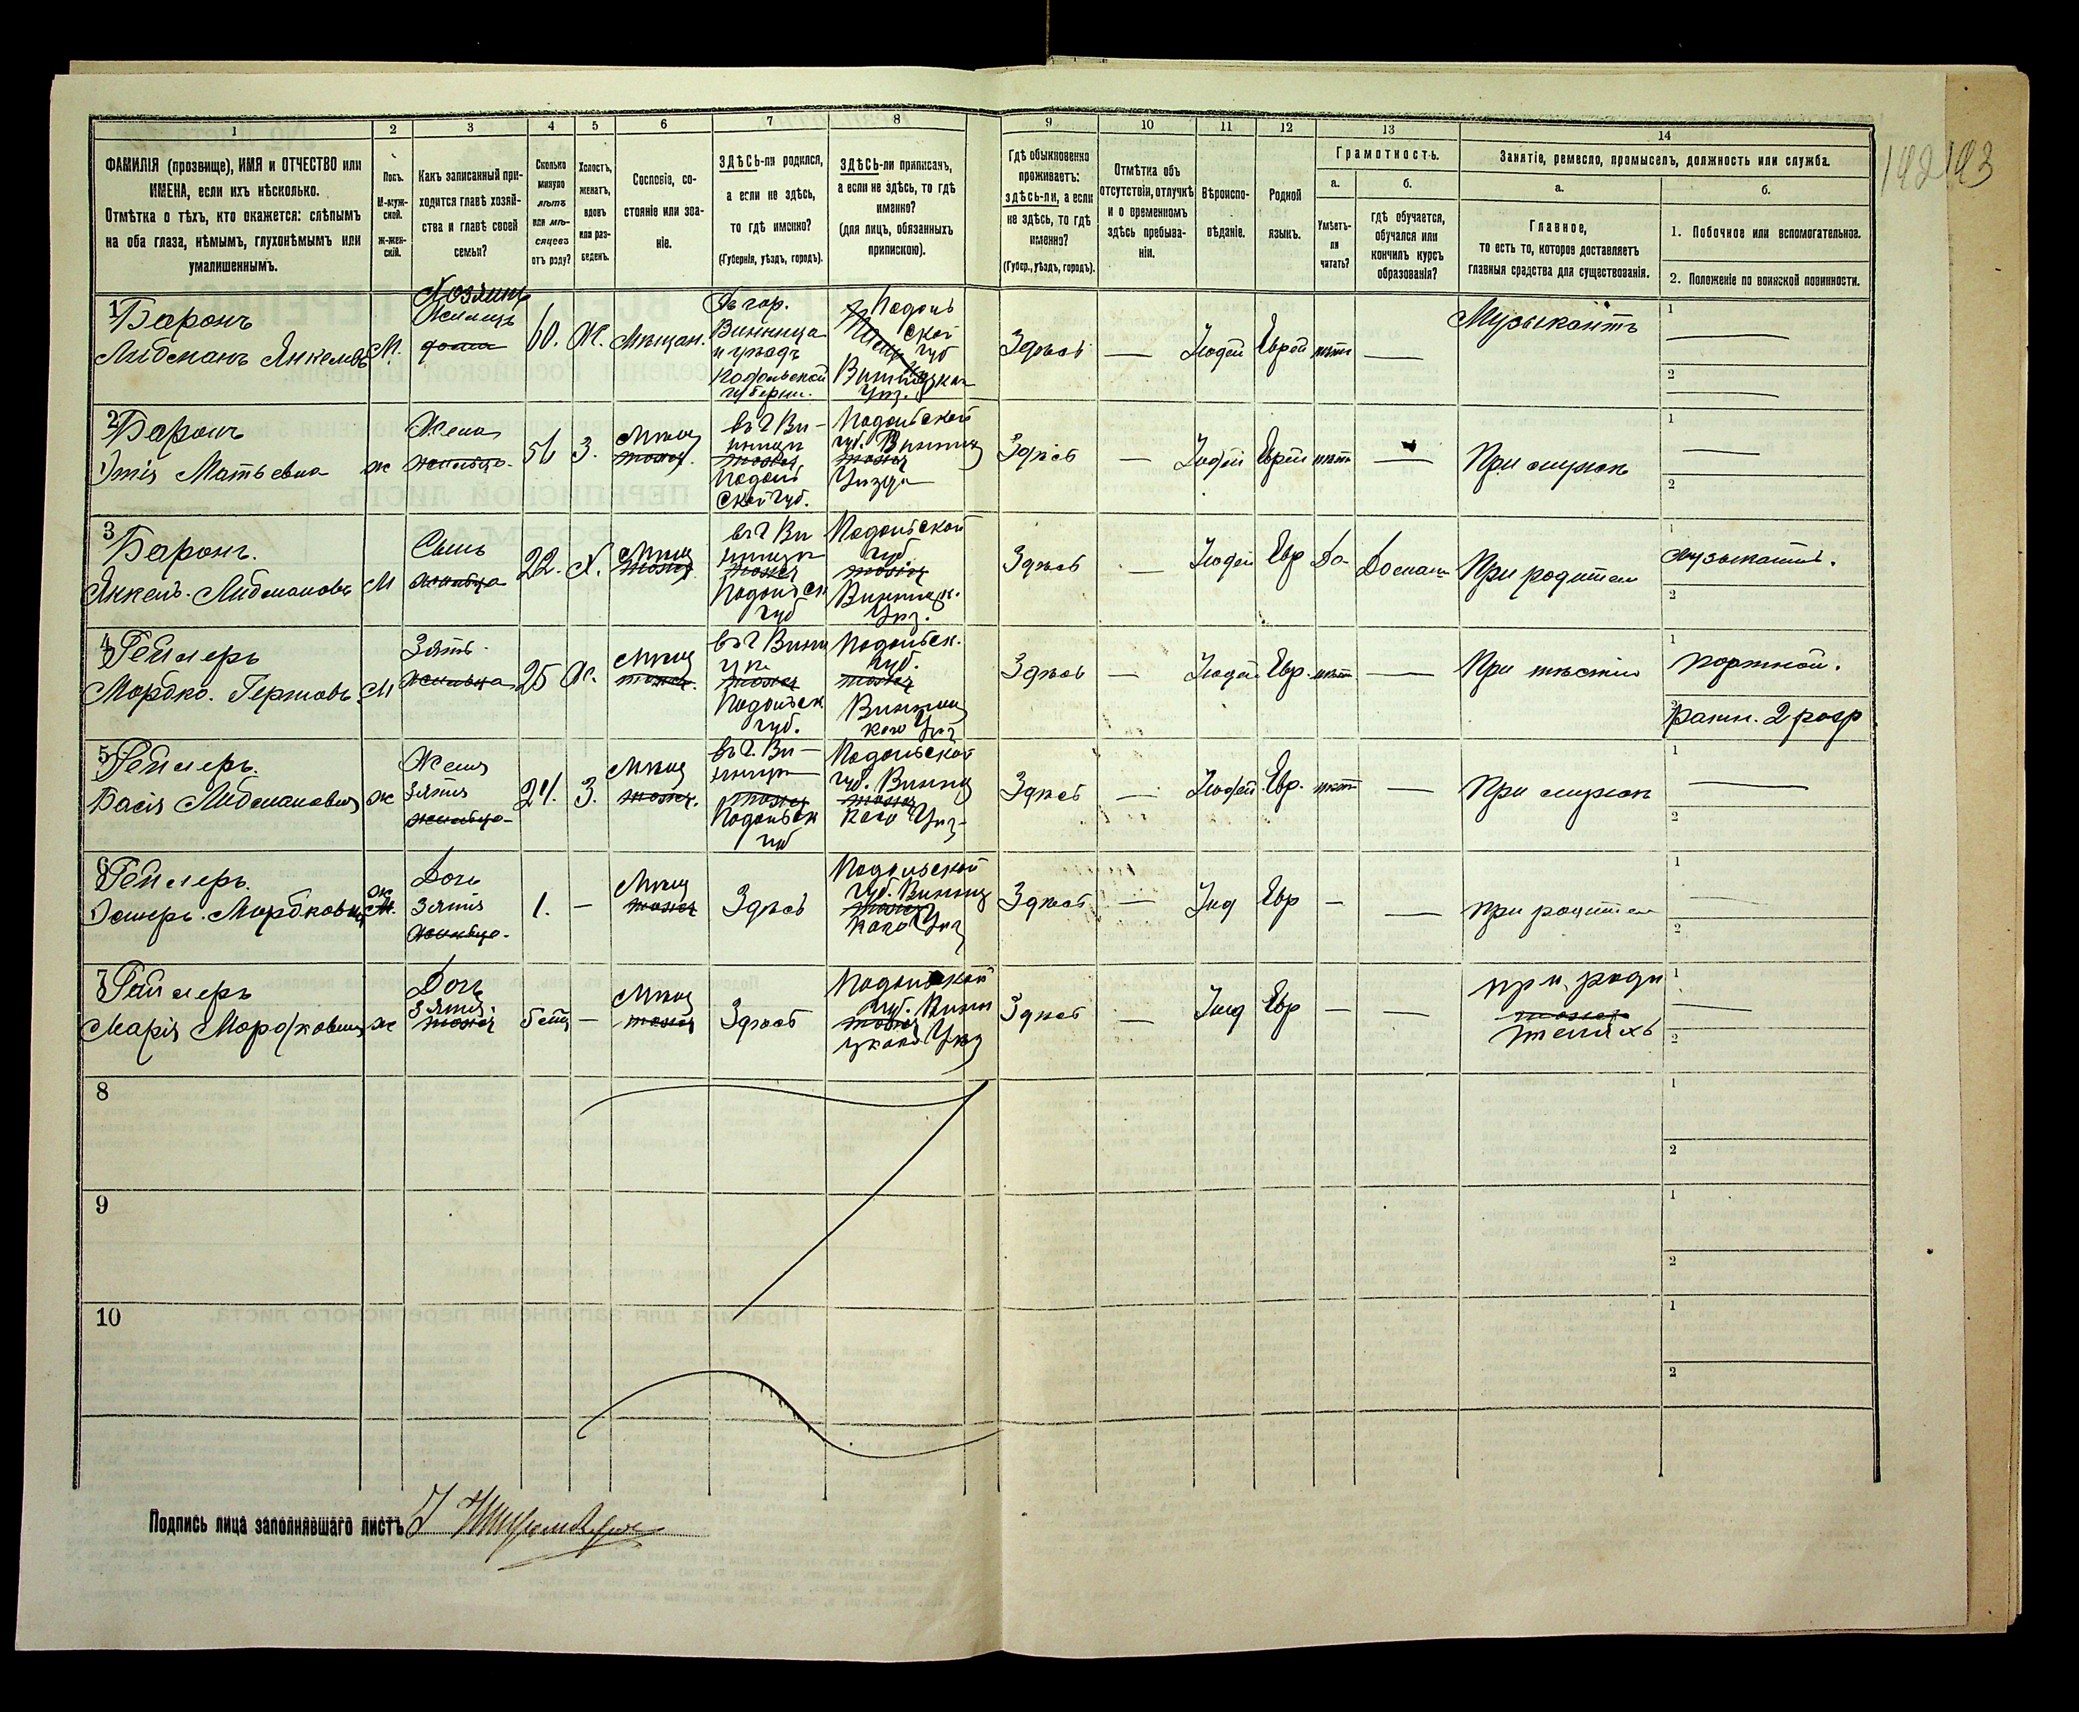 1 2 3 4 5 6 7 8 9 10 11 12 13 14
ФАМИЛІЯ (прозвище), ИМЯ и ОТЧЕСТВО или
ИМЕНА, если ихъ нѣсколько.
Отмѣтка о тѣхъ, кто окажется: слѣпымъ
на оба глаза, нѣмымъ, глухонѣмымъ или
умалишеннымъ.
Полъ.
М-муж-
ской.
Ж-жен-
скій.
Какъ записанный при-
ходится главѣ хозяй-
ства и главѣ своей
семьи?
Сколько
минуло
лѣтъ
или мѣ-
сяцевъ
отъ роду?
Холостъ,
женатъ,
вдовъ
или раз-
веденъ.
Сословіе, со-
стояніе или зва-
ніе.
ЗДѢСЬ-ли родился,
а если не здѣсь,
то гдѣ именно?
(Губернія, уѣздъ, городъ).
ЗДѢСЬ-ли приписанъ,
а если не здѣсь, то гдѣ
именно?
(для лицъ, обязанныхъ
припискою).
Гдѣ обыкновенно
проживаетъ:
здѣсь-ли, а если
не здѣсь, то гдѣ
именно?
(Губер., уѣздъ, городъ).
Отмѣтка объ
отсутствіи, отлучкѣ
и о временномъ
здѣсь пребыва-
ніи.
Вѣроиспо-
вѣданіе.
Родной
языкъ.
Грамотность.
а.
Умѣетъ-
ли
читать?
б.
гдѣ обучается,
обучался или
кончилъ курсъ
образованія?
Занятіе, ремесло, промыселъ, должность или служба.
а.
Главное,
то есть то, которое доставляетъ
главныя средства для существованія.
б.
1. Побочное или вспомогательное.
2. Положеніе по воинской повинности.
192 193
1 Баронъ
Либманъ Янкелевъ
М.
Хозяинъ
60. Ж. Мѣщан.
Въ гор.
Винница
и уѣздъ
Подольской
губерни.
Подоль
ской
губ
Винницкаг
Уѣз.
Здѣсь — Іюдей Еврей нѣтъ —
Музыкантъ
1 —
2 —
2 Баронъ
Матьевна ж
Жена
56 З.
Мѣщ
въ г Ви-
нници
Подоль
ской губ.
Подольской
губ. Винниц
Уѣзда
Здѣсь — Іюдей Еврей нѣтъ —
При мужѣ
1 —
2
3 Баронъ.
Янкель Либмановъ М
Сынъ
22. Х.
Мѣщ
въ г Ви
нници
Подольск
губ
Подольской
губ
Винницк.
Уѣз.
Здѣсь — Іюдей Евр Да
При родител
1 музыкантъ.
2
4 Геймеръ
Мордко Гершовъ М
Зять
25 Ж.
Мѣщ
въ г Винн
ици
Подольск
губ.
Подольск.
губ.
Винниц
каго Уѣз
Здѣсь — Іюдей Евр. нѣтъ —
При тѣстѣ
1 портной.
2 ратн. 2 разр
5 Геймеръ.
Бася Либмановна ж
Жена
зятя
24. З.
Мѣщ
въ г. Ви-
нници
Подольск
губ
Подольской
губ. Винниц
каго Уѣз
Здѣсь — Іюдей Евр. нѣтъ —
При мужѣ
1 —
2
6 Геймеръ.
Эстеръ Мордковна
ж
Дочь
зятя
1. —
Мѣщ
Здѣсь
Подольской
губ. Винниц
каго Уѣз
Здѣсь — Іюд Евр — —
при родител
1 —
2
7 Геймеръ
Марія Мордковна ж
Дочь
зятя.
Мѣщ
Здѣсь
Подольской
губ. Винн
ицкаго Уѣз
Здѣсь — Іюд Евр — —
при роди
теляхъ
1 —
2
8
1
2
9
1
2
10
1
2
Подпись лица заполнявшаго листъ